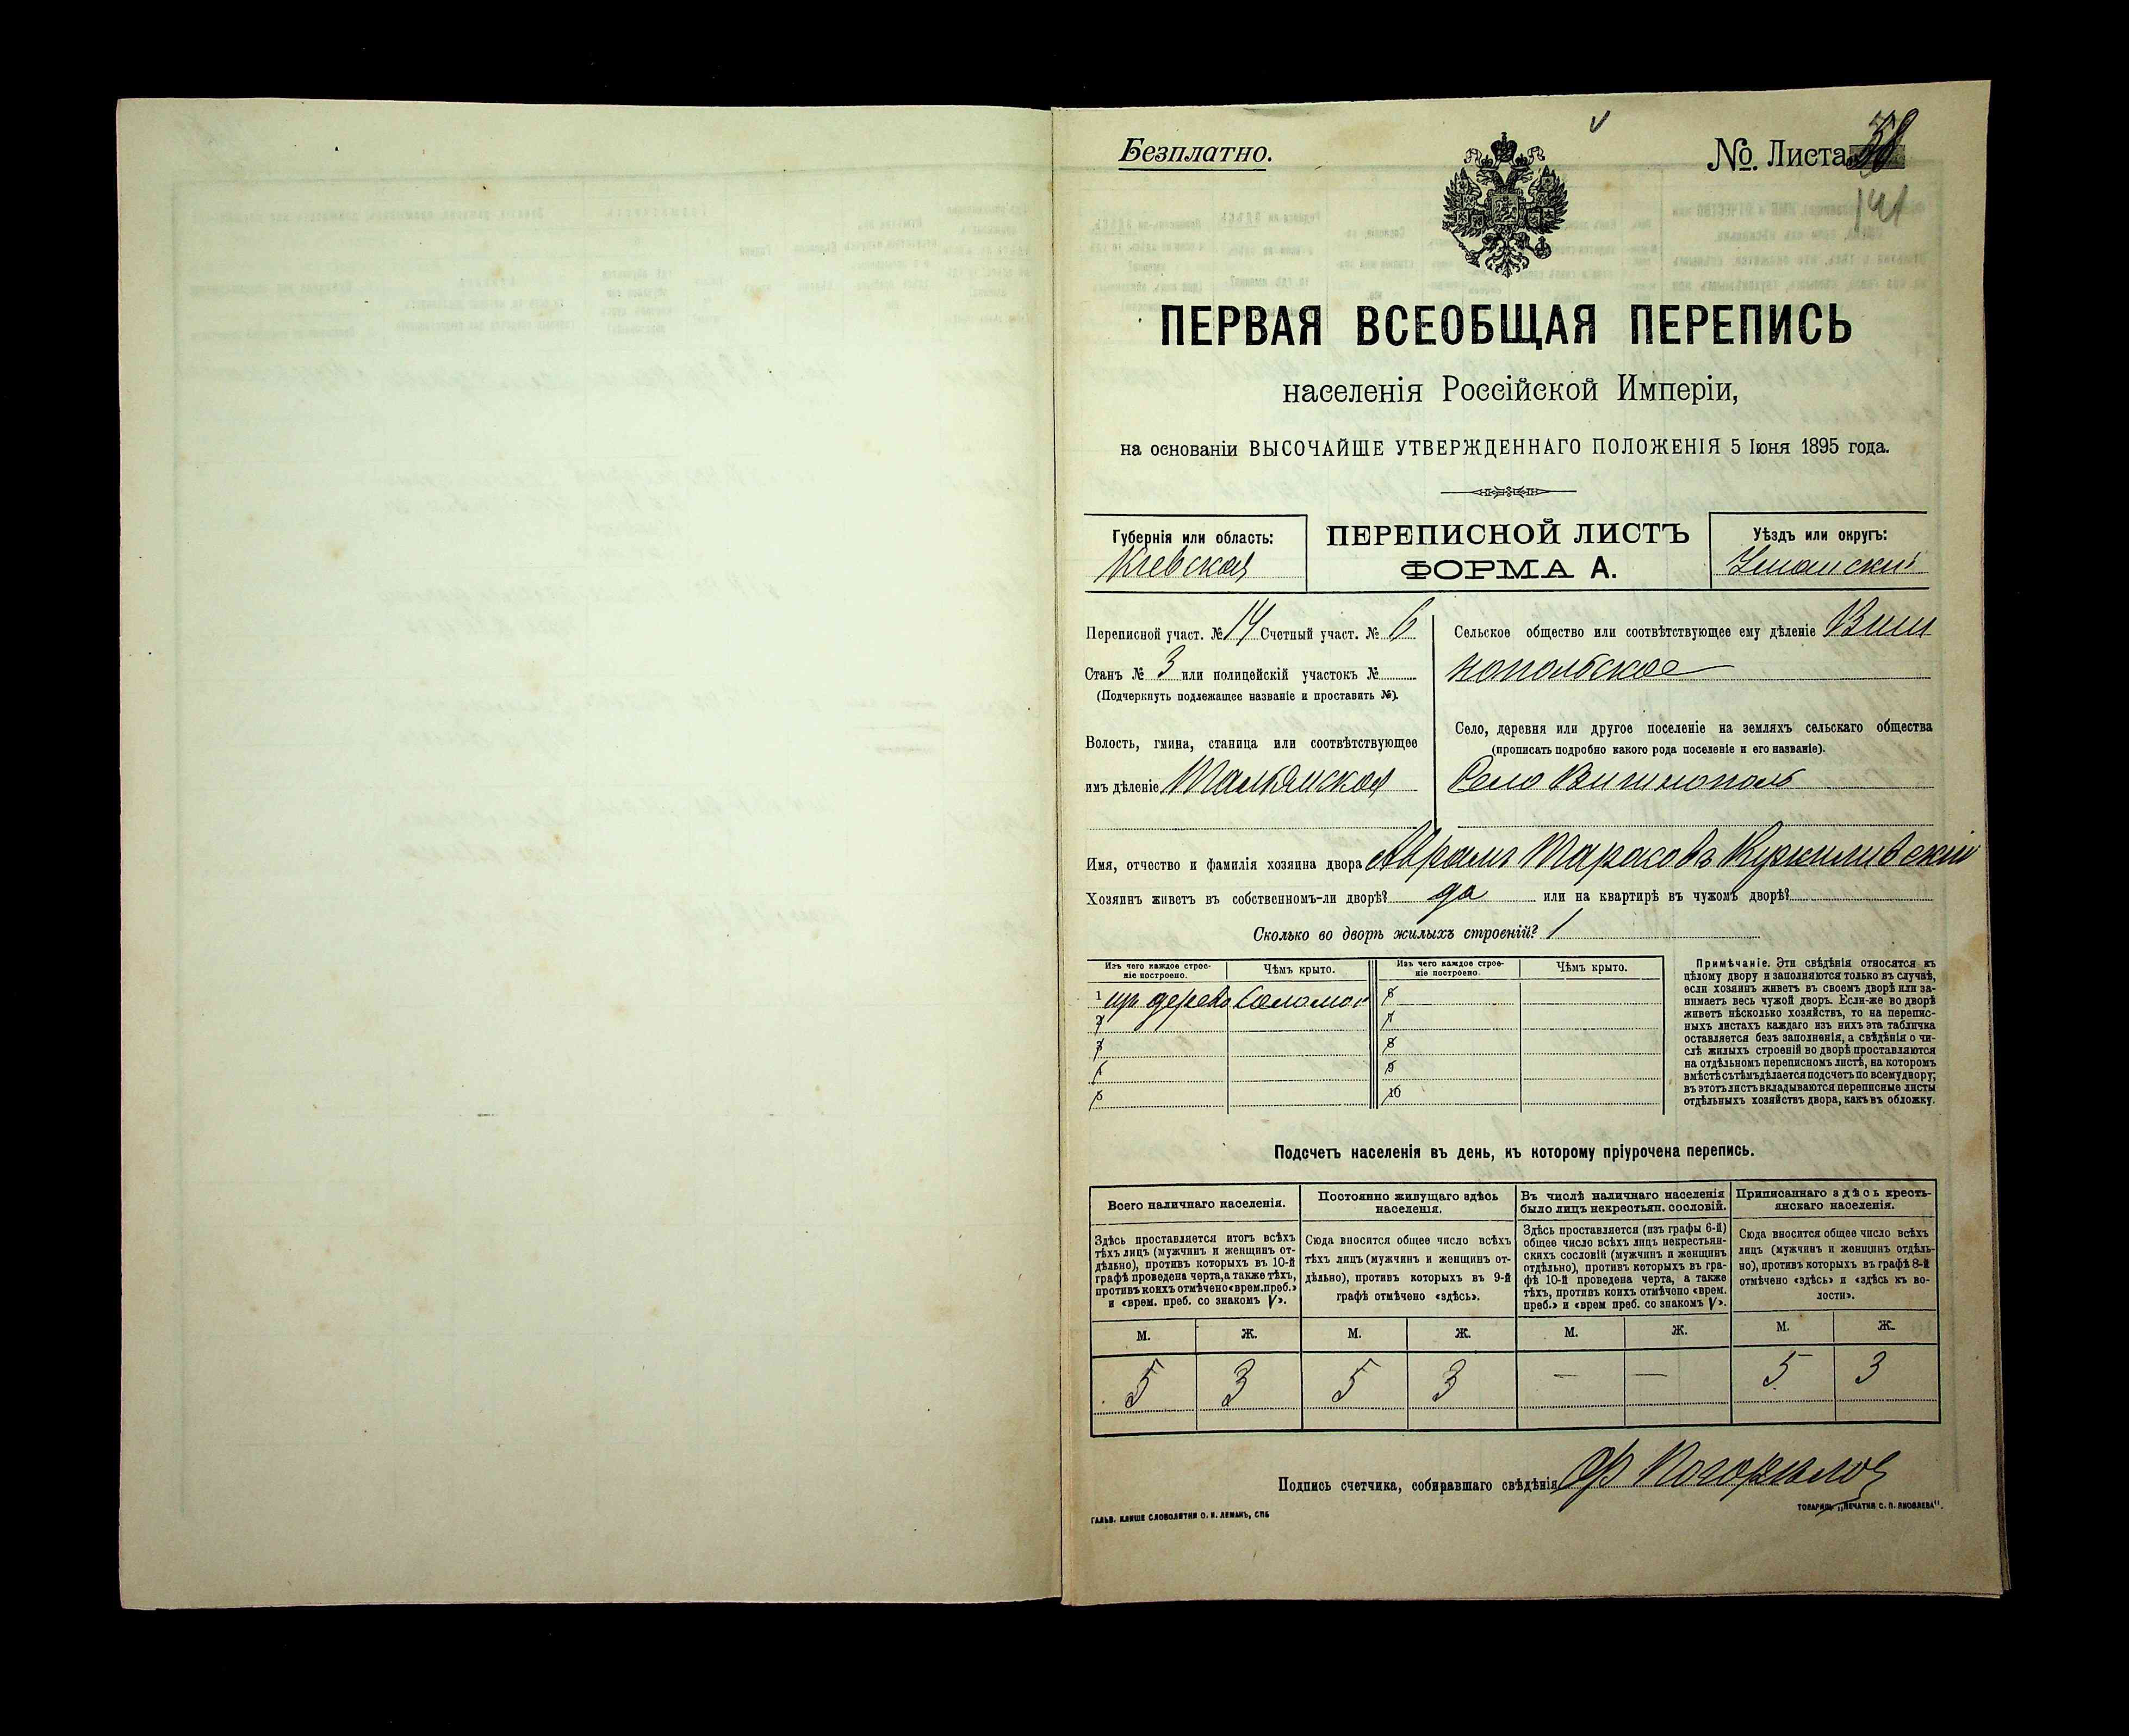 Безплатно.
№ Листа 38
141
ПЕРВАЯ ВСЕОБЩАЯ ПЕРЕПИСЬ
населенія Россійской Имперіи,
на основаніи ВЫСОЧАЙШЕ УТВЕРЖДЕННАГО ПОЛОЖЕНІЯ 5 Іюня 1895 года.
Губернія или область:
Кіевская
ПЕРЕПИСНОЙ ЛИСТЪ
ФОРМА А.
Уѣздъ или округъ:
Уманскій
Переписной участ. № 14 Счетный участ. № 6
Станъ № 3 или полицейскій участокъ №
(Подчеркнуть подлежащее названіе и проставить №).
Волость, гмина, станица или соотвѣтствующее
имъ дѣленіе Тальянская
Сельское общество или соотвѣтствующее ему дѣленіе Виш
нопольское
Село, деревня или другое поселеніе на земляхъ сельскаго общества
(прописать подробно какого рода поселеніе и его названіе).
Село Вишнополь
Имя, отчество и фамилія хозяина двора Аврамъ Тарасовъ
Хозяинъ живетъ въ собственномъ-ли дворѣ? да или на квартирѣ въ чужомъ дворѣ?
Сколько во дворѣ жилыхъ строеній? 1
Изъ чего каждое строе-
ніе построено.
Чѣмъ крыто.
Изъ чего каждое строе-
ніе построено.
Чѣмъ крыто.
1 дерева Соломой
6
2
7
3
8
4
9
5
10
Примѣчаніе. Эти свѣдѣнія относятся къ
цѣлому двору и заполняются только въ случаѣ,
если хозяинъ живетъ въ своемъ дворѣ или за-
нимаетъ весь чужой дворъ. Если-же во дворѣ
живетъ нѣсколько хозяйствъ, то на перепис-
ныхъ листахъ каждаго изъ нихъ эта табличка
оставляется безъ заполненія, а свѣдѣнія о чи-
слѣ жилыхъ строеній во дворѣ проставляются
на отдѣльномъ переписномъ листѣ, на которомъ
вмѣстѣ съ тѣмъ дѣлается подсчетъ по всему двору;
въ этотъ листъ вкладываются переписные листы
отдѣльныхъ хозяйствъ двора, какъ въ обложку.
Подсчетъ населенія въ день, къ которому пріурочена перепись.
Всего наличнаго населенія.
Постоянно живущаго здѣсь
населенія.
Въ числѣ наличнаго населенія
было лицъ некрестьян. сословій.
Приписаннаго здѣсь кресть-
янскаго населенія.
Здѣсь проставляется итогъ всѣхъ
тѣхъ лицъ (мужчинъ и женщинъ от-
дѣльно), противъ которыхъ въ 10-й
графѣ проведена черта, а также тѣхъ,
противъ коихъ отмѣчено «врем. преб.»
и «врем. преб. со знакомъ V».
Сюда вносится общее число всѣхъ
тѣхъ лицъ (мужчинъ и женщинъ от-
дѣльно), противъ которыхъ въ 9-й
графѣ отмѣчено «здѣсь».
Здѣсь проставляется (изъ графы 6-й)
общее число всѣхъ лицъ некрестьян-
скихъ сословій (мужчинъ и женщинъ
отдѣльно), противъ которыхъ въ гра-
фѣ 10-й проведена черта, а также
тѣхъ, противъ коихъ отмѣчено «врем.
преб.» и «врем преб. со знакомъ V».
Сюда вносится общее число всѣхъ
лицъ (мужчинъ и женщинъ отдѣль-
но), противъ которыхъ въ графѣ 8-й
отмѣчено «здѣсь» и «здѣсь къ во-
лости».
М. Ж. М. Ж. М. Ж. М. Ж.
5 3 5 3 — — 5 3
Подпись счетчика, собиравшаго свѣдѣнія
ГАЛЬВ. КЛИШЕ СЛОВОЛИТНИ О. И. ЛЕМАНЪ, СПБ
ТОВАРИЩ. „ПЕЧАТНЯ С. П. ЯКОВЛЕВА".